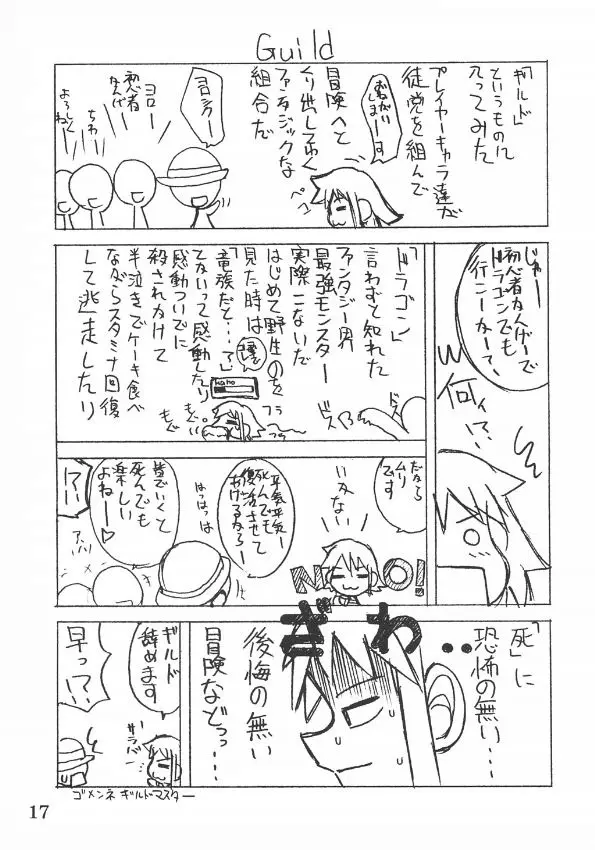 Guild
「ギルド」
というものに
入ってみた
プレイヤーキャラ達が
徒党を組んで
冒険へと
くり出してゆく
ファンタジックな
組合だ
おねがい
しまーす
ペコ
ヨロシクー
ヨロー
初心者
なんだー
ちわー
よろしくね
じゃー
初心者なんで
ドラゴンでも
行こーかー?
何ィ!?
「ドラゴン」
言わずと知れた
ファンタジー界
最強モンスター
実際こないだ
はじめて野生のを
見た時は
「竜族だと…?」
裸で
てないって感動したり
感動ついでに
殺されかけて
半泣きでケーキ食べ
ながらスタミナ回復
して逃走したり
kaho
もぐ
もぐ
フラ
フラ
ドス
ドス
だから
ムリ
です
いえない
NO!
平気平気ー
死んでも
復活させて
あげるからー
はっはっは
皆でいくと
死んでも
楽しい
よねー♡
アハハ
!?
「死」に
恐怖の無い…
ぎわ・・
後悔の無い
冒険などっ…
ギルド
辞めます
サラバー
早っ!?
ゴメンネ ギルドマスター
17